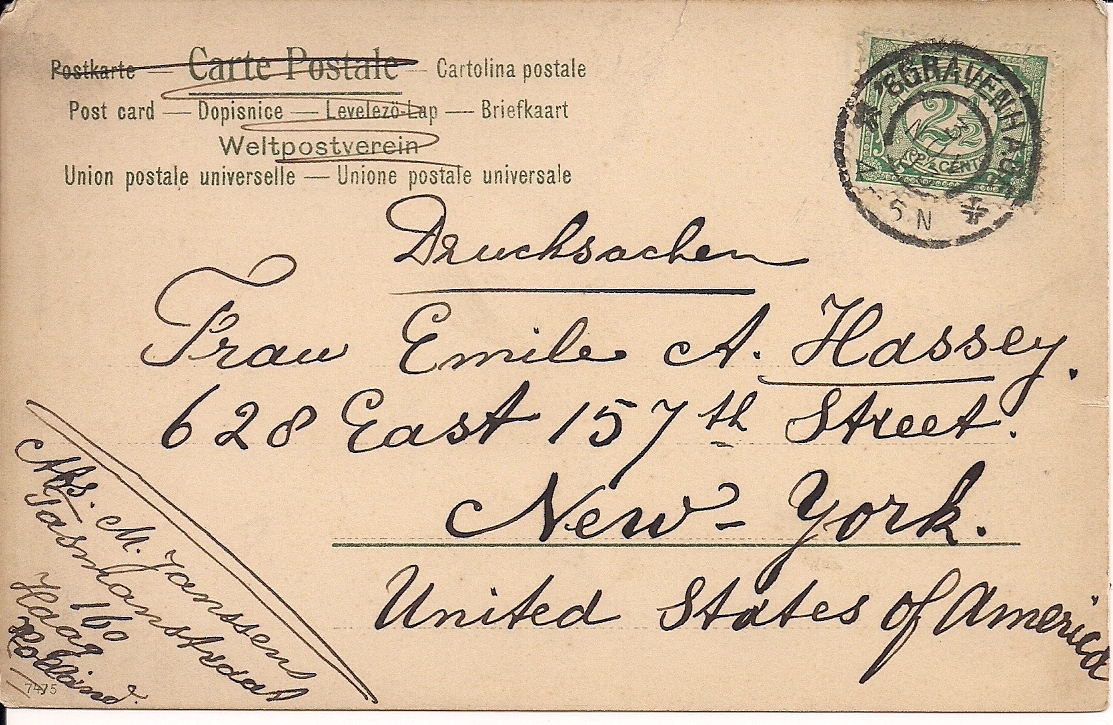 Postkarte — Carte Postale — Cartolina postale
Post card — Dopisnice — Levelezö-Lap — Briefkaart
Weltpostverein
Union postale universelle — Unione postale universale
'SGRAVENHAGE
2½
CENT
5 N
Drucksachen
Frau Emile A. Hassey.
628 East 157th Street.
New-York.
United States of America
Abs. M. Janssen
Tasmanstraat
160
Haag
Holland.
7475